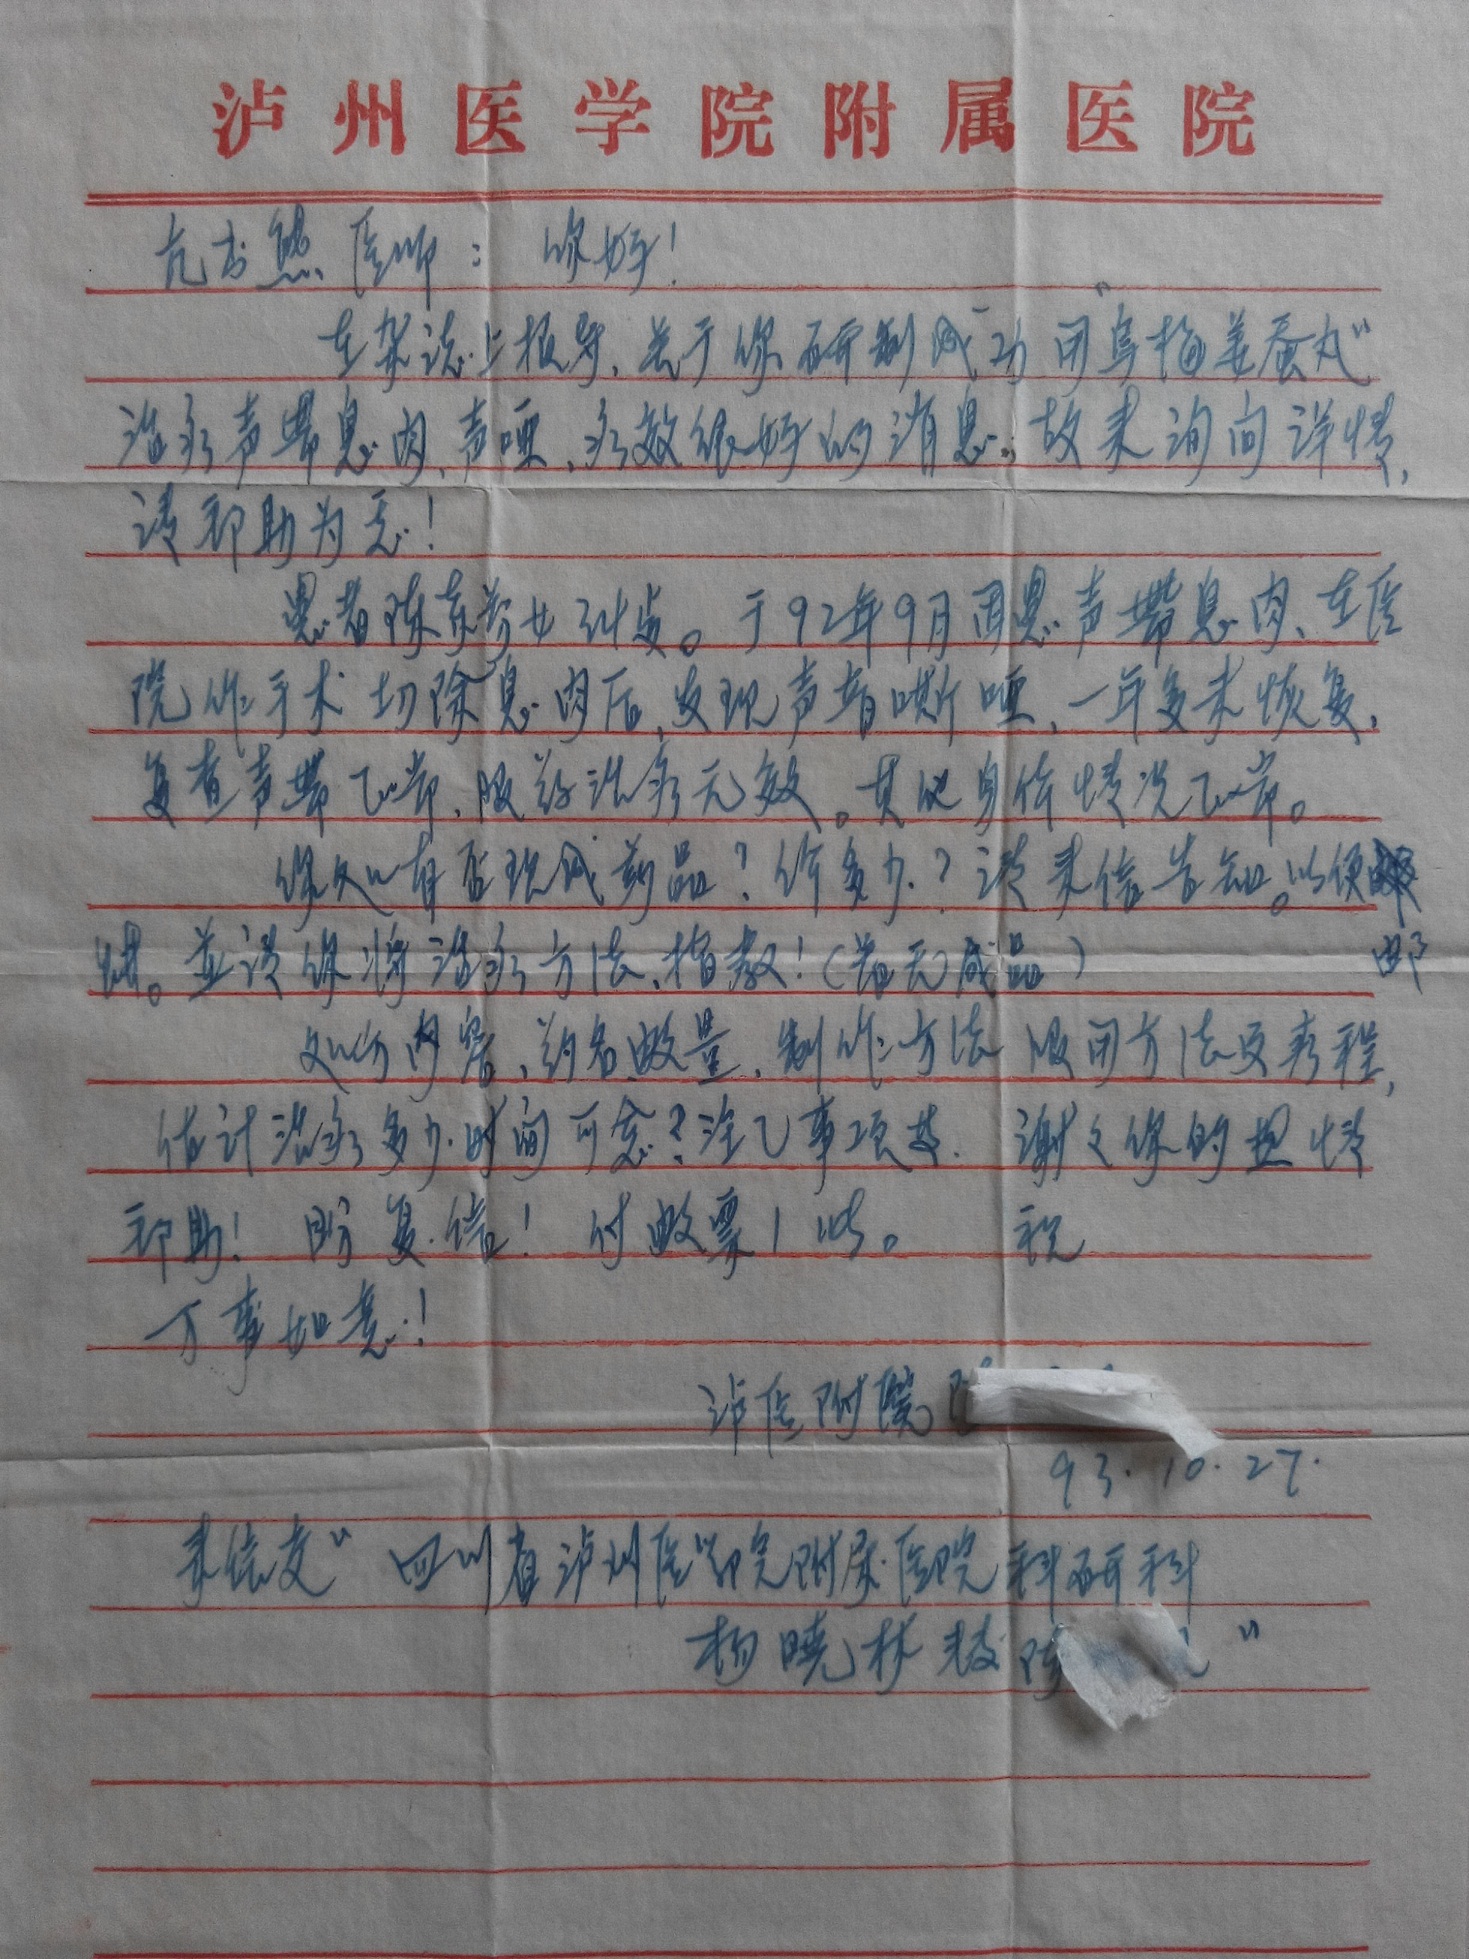 泸州医学院附属医院
医师：你好！
在杂志上报导，关于你研制成功用“乌梅姜蚕丸”
治疗声带息肉、声哑、疗效很好的消息。故来询问详情，
请帮助为盼！
患者陈 女 岁。于92年9月因患声带息肉、在医
院作手术切除息肉后，发现声音嘶哑，一年多未恢复，
复查声带正常，服药治疗无效。其他身体情况正常。
你处有否现成药品？价多少？请来信告知。以便邮
购。并请你将治疗方法，指教！（若无成品）
处方内容、药名、数量、制作方法 服用方法及疗程，
估计治疗多少时间可愈？注意事项等。谢谢你的热情
帮助！盼复信！付邮票1张。 祝
万事如意！
泸医附院
93.10.27.
来信交“四川省泸州医学院附属医院科研科
杨晓林转陈 ”